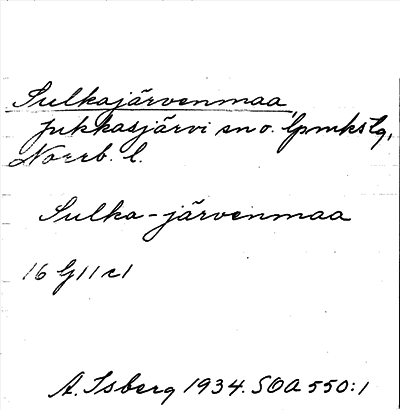 Sulkajärvenmaa,
Jukkasjärvi sn o. lpmkstg,
Norrb. l.
Sulka-järvenmaa
16 G11c1
A. Isberg 1934. SOA 550:1